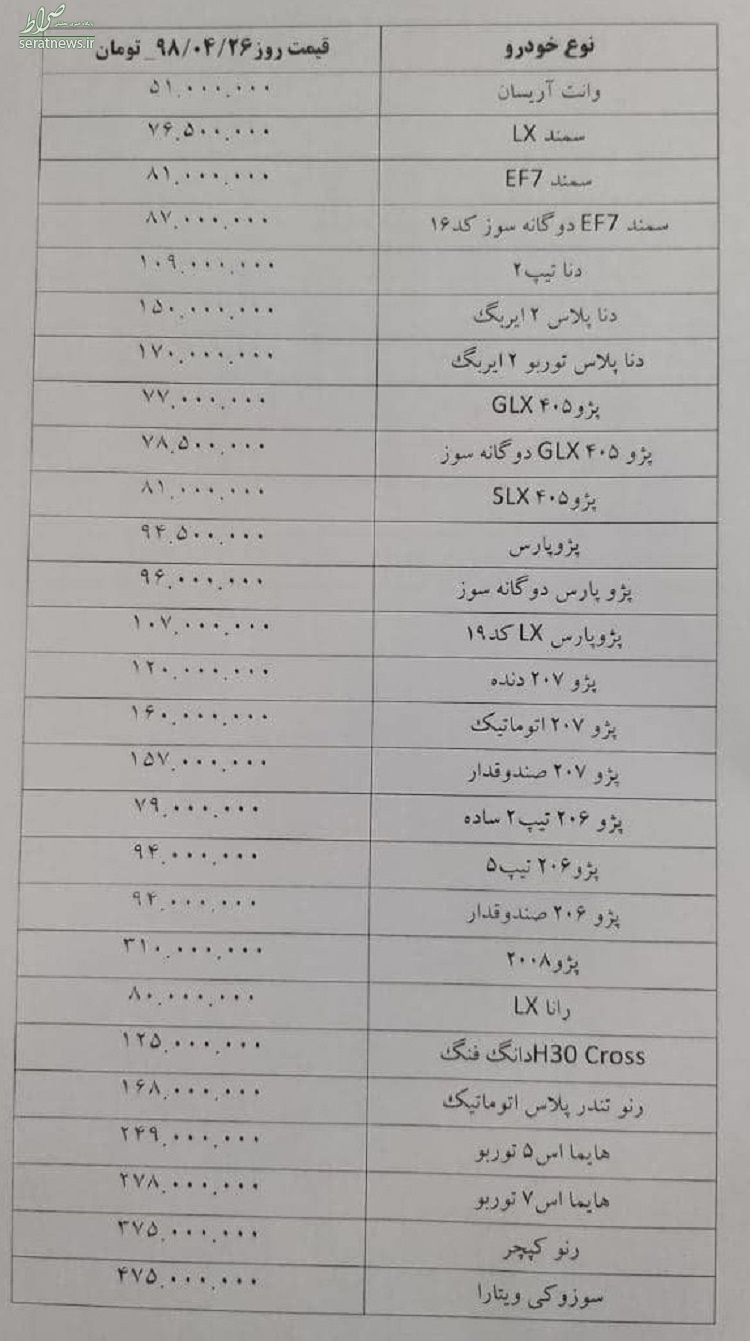 صراط
seratnews.ir
نوع خودرو قیمت روز ۹۸/۰۴/۲۶_ تومان
وانت آریسان ۵۱.۰۰۰.۰۰۰
سمند LX ۷۶.۵۰۰.۰۰۰
سمند EF7 ۸۱.۰۰۰.۰۰۰
سمند EF7 دوگانه سوز کد۱۶ ۸۷.۰۰۰.۰۰۰
دنا تیپ۲ ۱۰۹.۰۰۰.۰۰۰
دنا پلاس ۲ ایربگ ۱۵۰.۰۰۰.۰۰۰
دنا پلاس توربو ۲ ایربگ ۱۷۰.۰۰۰.۰۰۰
پژو۴۰۵ GLX ۷۷.۰۰۰.۰۰۰
پژو ۴۰۵ GLX دوگانه سوز ۷۸.۵۰۰.۰۰۰
پژو۴۰۵ SLX ۸۱.۰۰۰.۰۰۰
پژوپارس ۹۴.۵۰۰.۰۰۰
پژو پارس دوگانه سوز ۹۶.۰۰۰.۰۰۰
پژوپارس LX کد۱۹ ۱۰۷.۰۰۰.۰۰۰
پژو ۲۰۷ دنده ۱۲۰.۰۰۰.۰۰۰
پژو ۲۰۷ اتوماتیک ۱۶۰.۰۰۰.۰۰۰
پژو ۲۰۷ صندوقدار ۱۵۷.۰۰۰.۰۰۰
پژو ۲۰۶ تیپ۲ ساده ۷۹.۰۰۰.۰۰۰
پژو۲۰۶ تیپ۵ ۹۴.۰۰۰.۰۰۰
پژو ۲۰۶ صندوقدار ۹۴.۰۰۰.۰۰۰
پژو۲۰۰۸ ۳۱۰.۰۰۰.۰۰۰
رانا LX ۸۰.۰۰۰.۰۰۰
H30 Crossدانگ فنگ ۱۲۵.۰۰۰.۰۰۰
رنو تندر پلاس اتوماتیک ۱۶۸.۰۰۰.۰۰۰
هایما اس۵ توربو ۲۴۹.۰۰۰.۰۰۰
هایما اس۷ توربو ۲۷۸.۰۰۰.۰۰۰
رنو کپچر ۳۷۵.۰۰۰.۰۰۰
سوزوکی ویتارا ۴۷۵.۰۰۰.۰۰۰